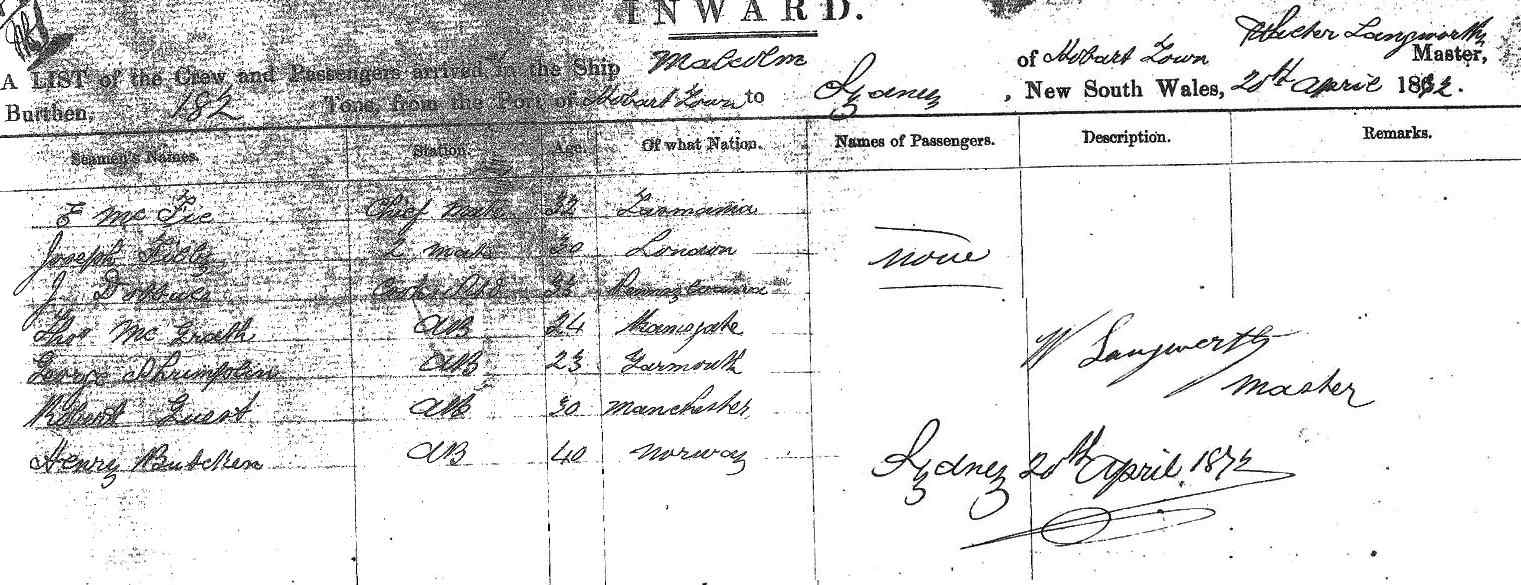 INWARD.
Langworth
A LIST of the Crew and Passengers arrived in the Ship Malcolm of Hobart Town Master,
Burthen, 182 Tons, from the Port of Hobart Town to Sydney, New South Wales, 20th April 1872.
Seamen's Names. Station. Age. Of what Nation. Names of Passengers. Description. Remarks.
F Mc Fie Chief Mate 32 Tasmania
Joseph 2 Mate 30 London None
J 35 Pennsylvania
Thos Mc Grath AB 24 Ramsgate
George Shrimpolin AB 23 Yarmouth W Langworth
Master
Robert Guest AB 30 Manchester
Henry Butchen AB 40 Norway Sydney 20th April 1872